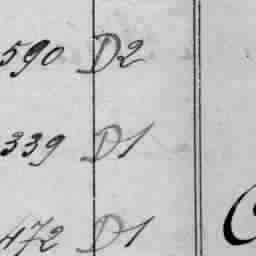 590 D2
339 D1
472 D1